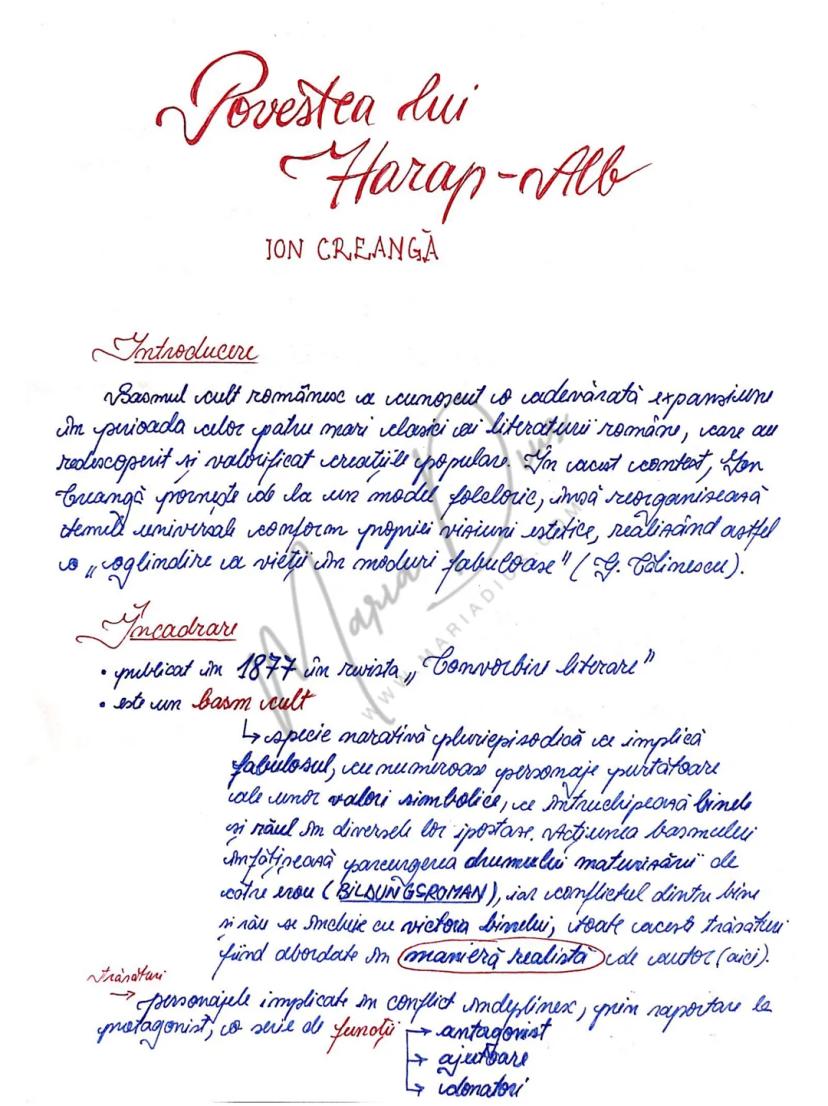 Povestea lui
Harap-Alb
ION CREANGĂ
Introducere
Basmul cult românesc a cunoscut o adevărată expansiune
în perioada celor patru mari clasici ai literaturii române, care au
redescoperit și valorificat creațiile populare. În acest context, Ion
Creangă pornește de la un model folcloric, însă reorganisează
temele universale conform propriei visiuni estetice, realisând astfel
o „oglindire a vieții în moduri fabuloase" (G. Călinescu).
Încadrare
• publicat în 1877 în revista „Convorbiri literare"
• este un basm cult
↳ specie narativă pluriepisodică ce implică
fabulosul, cu numeroase personaje purtătoare
ale unor valori simbolice, ce întruchipează binele
și răul în diversele lor ipostase. Acțiunea basmului
înfățișează parcurgerea drumului maturisării de
către erou (BILDUNGSROMAN), iar conflictul dintre bine
și rău se încheie cu victoria binelui, toate aceste trăsături
fiind abordate în manieră realistă de autor (aici).
trăsături
→ personajele implicate în conflict îndeplinesc, prin raportare la
protagonist, o serie de funcții → antagonist
→ ajutoare
↳ donatori
Maria Dius
WWW.MARIADIUS.COM